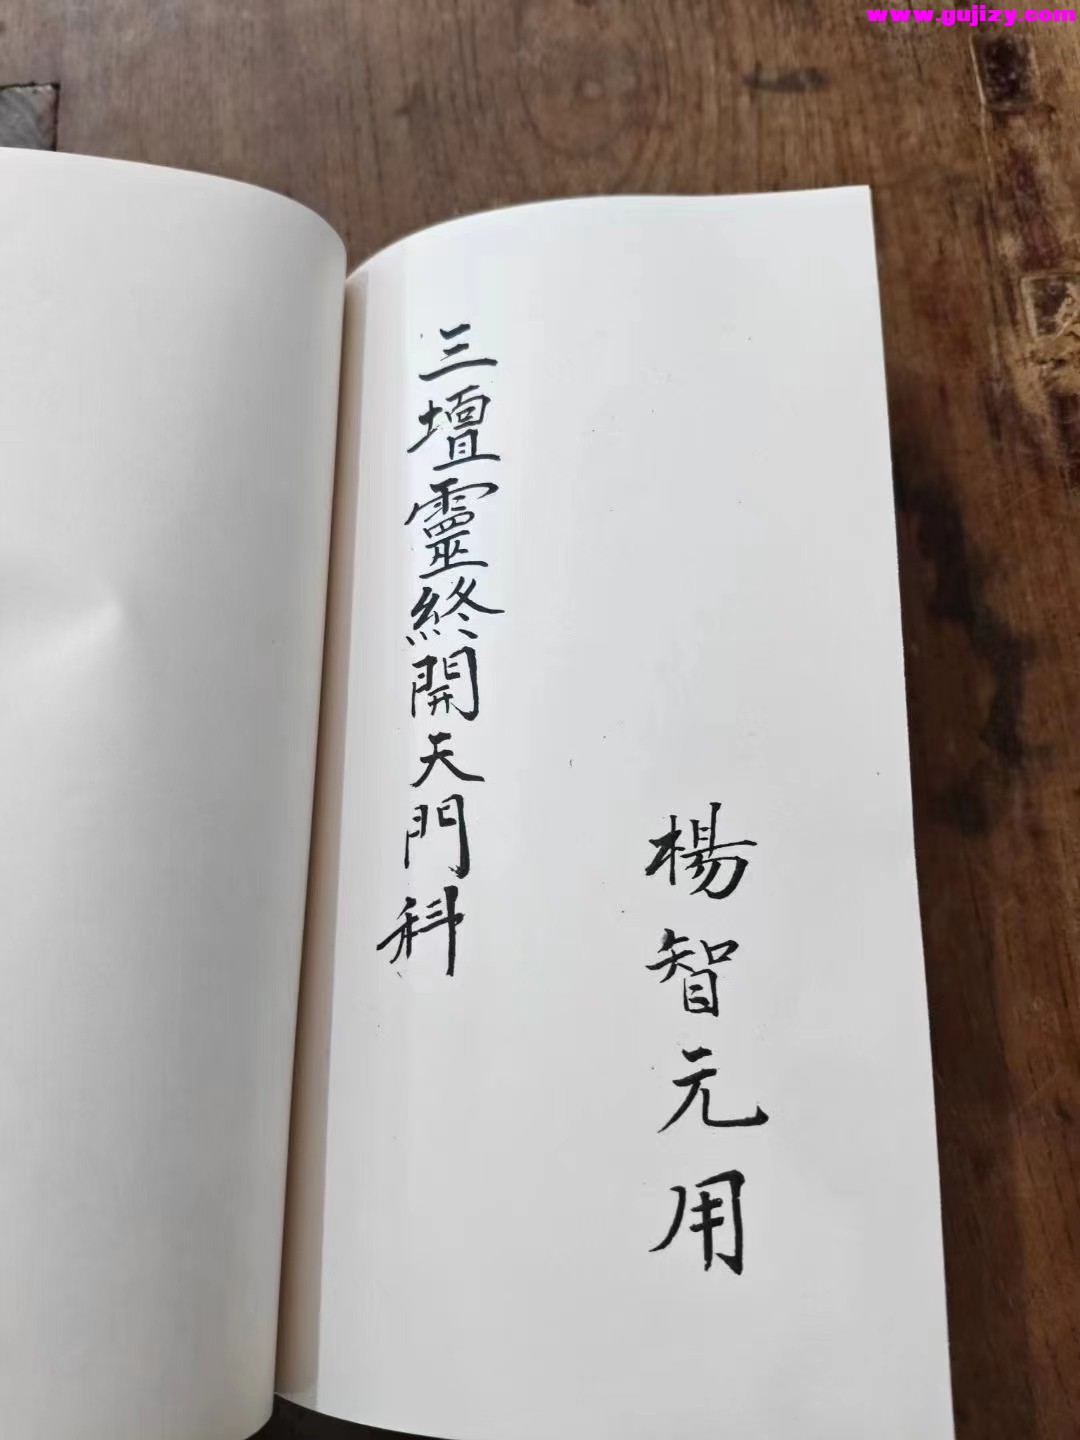 www.gujizy.com
楊智元用
三壇靈終開天門科